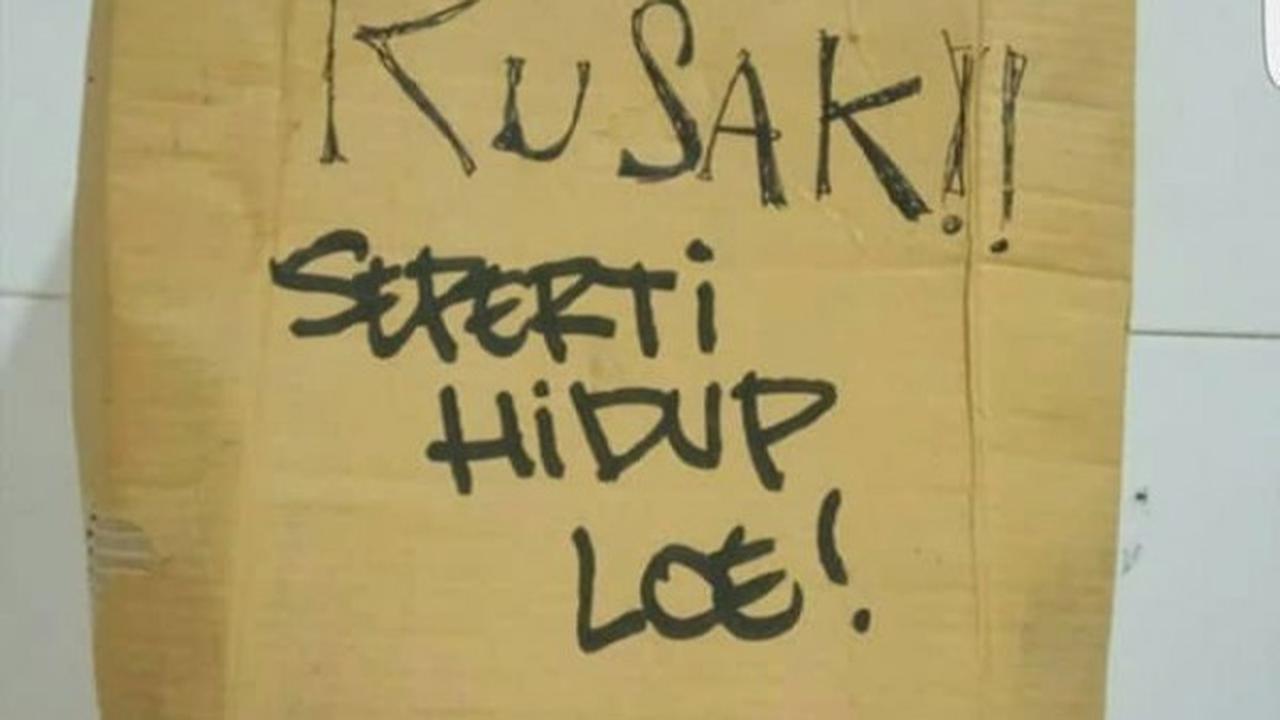 RUSAK!!
SEPERTi
HiDUP
LOE!